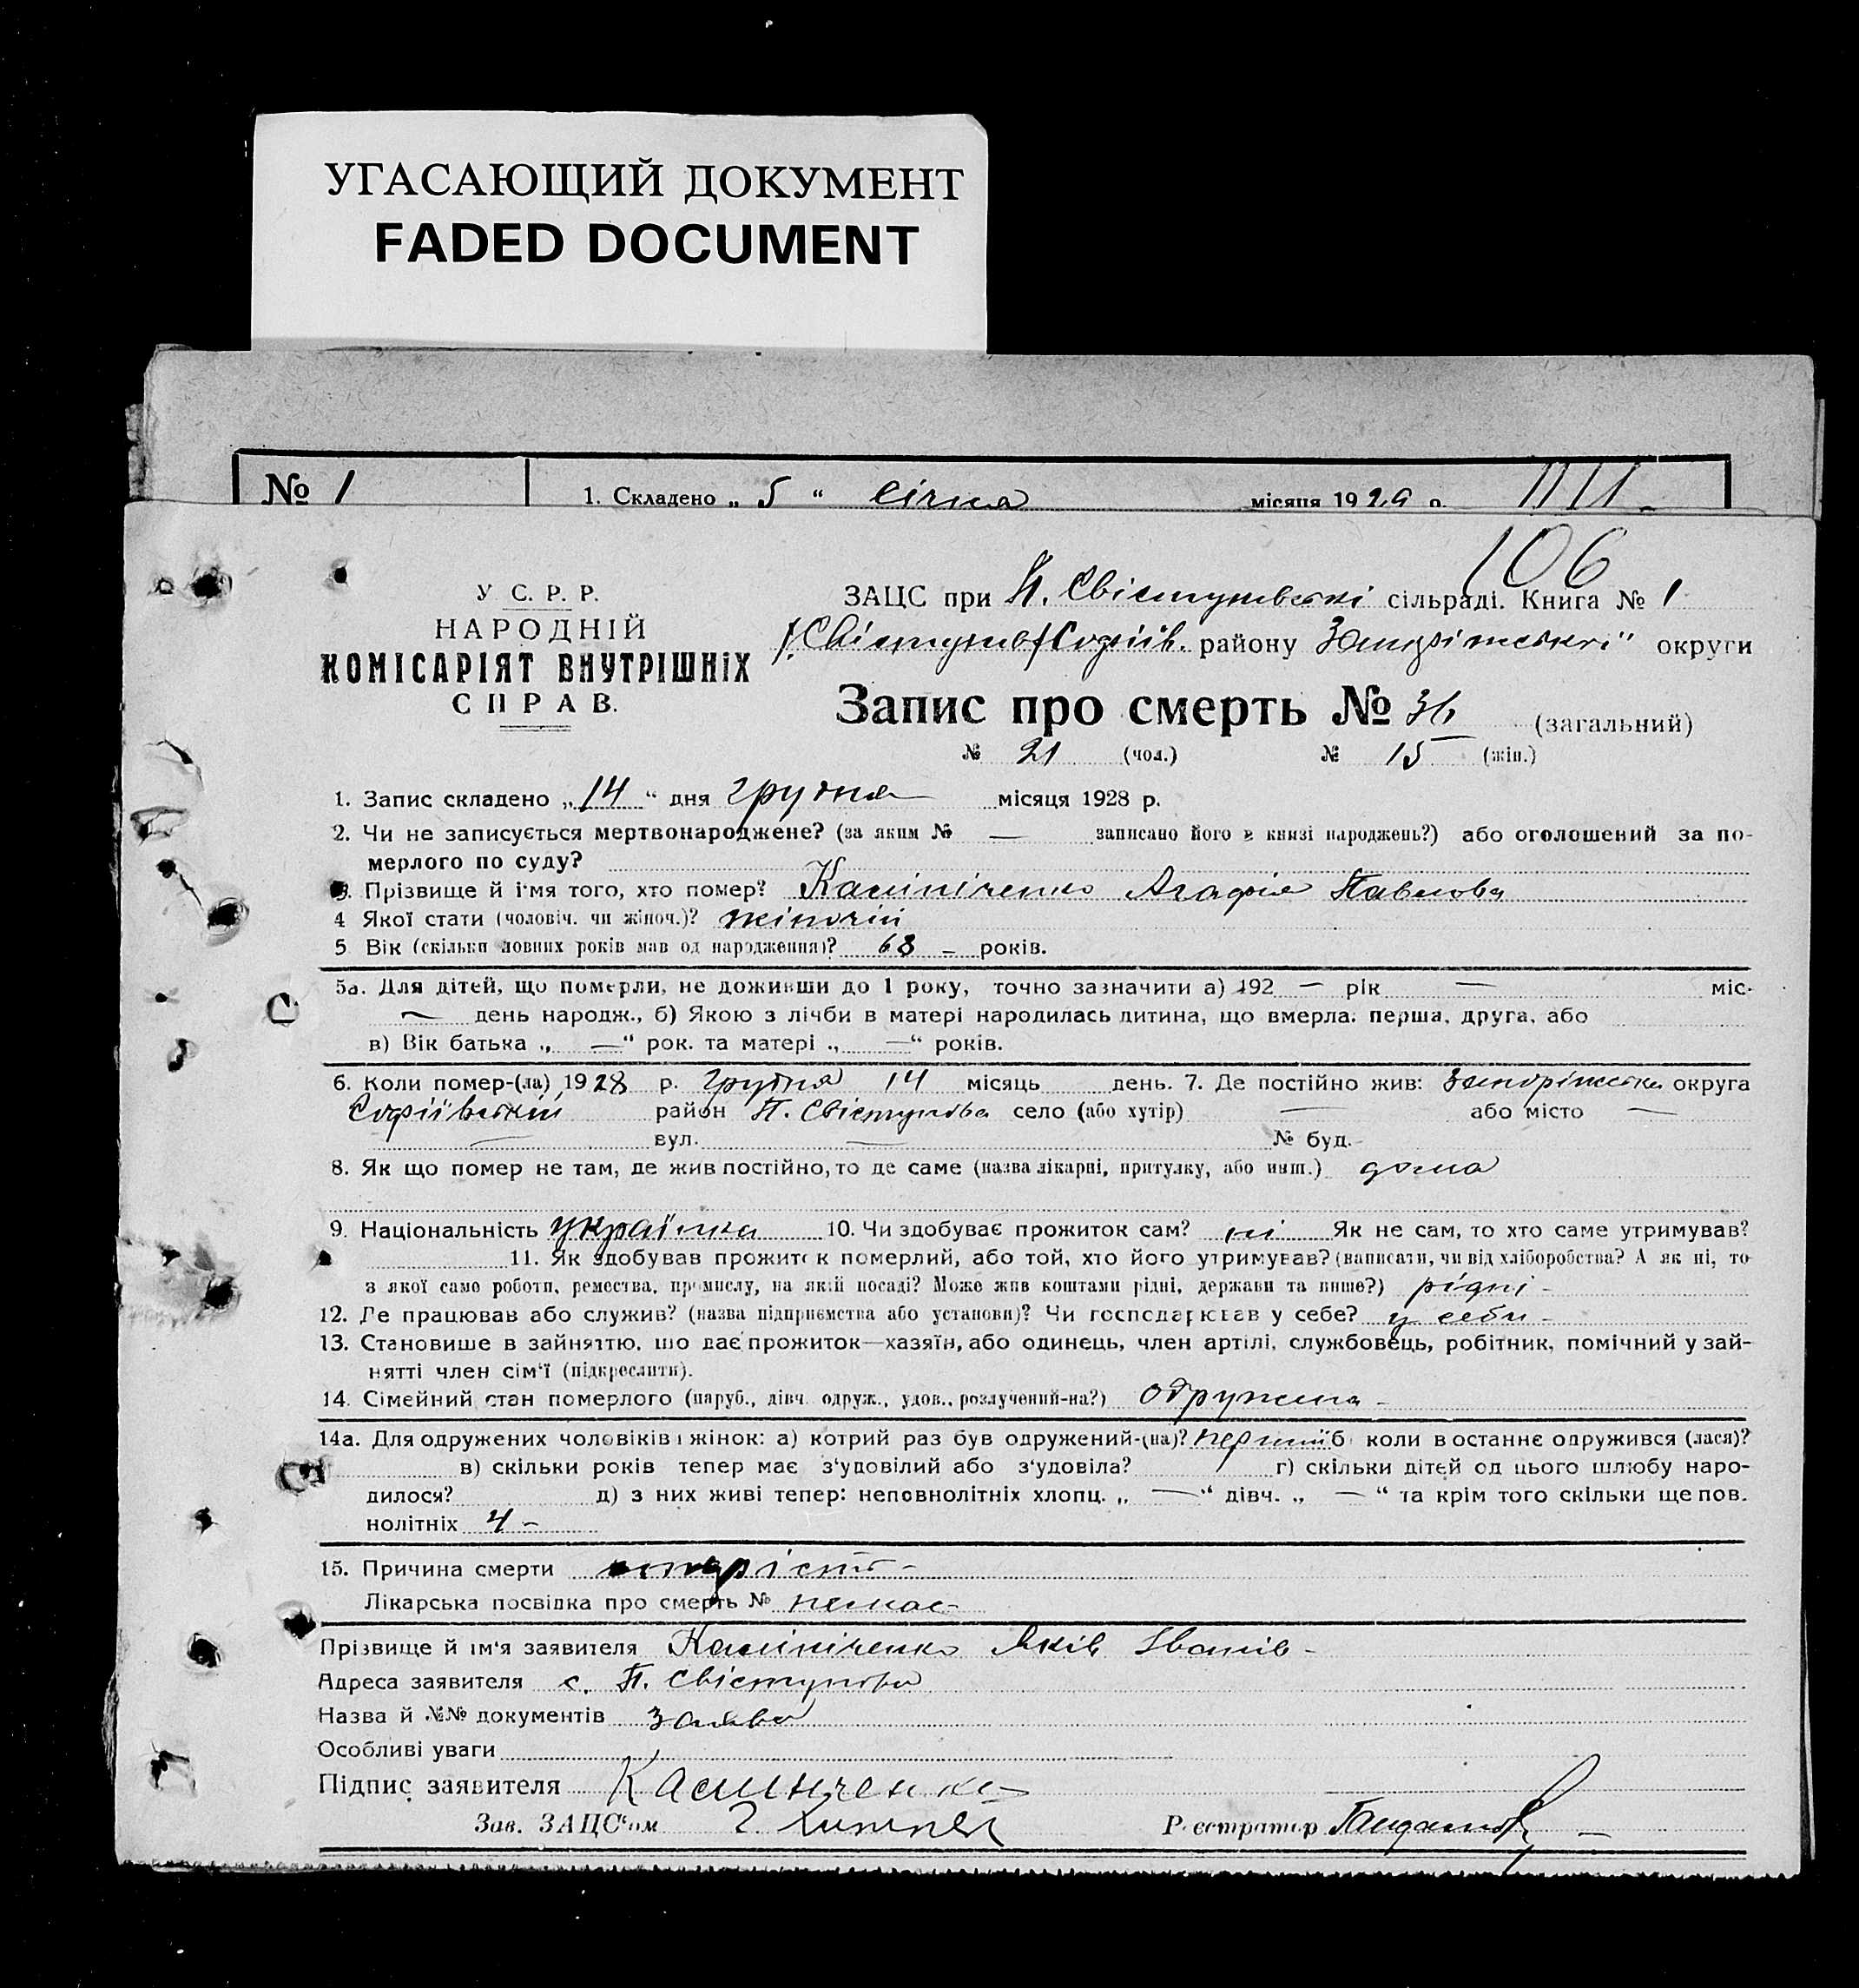 УГАСАЮЩИЙ ДОКУМЕНТ
FADED DOCUMENT
№ 1
1. Складено „ 5 “ січня місяця 1929 р.
106
У С. Р. Р.
НАРОДНІЙ
КОМІСАРІЯТ ВНУТРІШНІХ
СПРАВ.
ЗАЦС при П. Свістунівські сільраді. Книга № 1
району Запоріжської округи
Запис про смерть № 36 (загальний)
№ 21 (чол.) № 15 (жін.)
1. Запис складено „ 14 “ дня грудня місяця 1928 р.
2. Чи не записується мертвонароджене? (за яким № — записано його в книзі народжень?) або оголошений за по-
мерлого по суду?
3. Прізвище й ім'я того, хто помер? Калініченко Агафія Павлова
4 Якої стати (чоловіч. чи жіноч.)? жіночій
5 Вік (скільки повних років мав од народження)? 68 – років.
5а. Для дітей, що померли, не доживши до 1 року, точно зазначити а) 192 — рік — міс-
— день народж., б) Якою з лічби в матері народилась дитина, що вмерла: перша, друга, або
в) Вік батька „ — “ рок. та матері „ — “ років.
6. Коли помер-(ла) 1928 р. грудня 14 місяць день. 7. Де постійно жив: Запоріжська округа
Софіївський район П. Свістунова село (або хутір) — або місто —
— вул. — № буд.
8. Як що помер не там, де жив постійно, то де саме (назва лікарні, притулку, або инш.) дома
9. Національність українка 10. Чи здобуває прожиток сам? ні Як не сам, то хто саме утримував?
11. Як здобував прожиток померлий, або той, хто його утримував? (написати, чи від хліборобства? А як ні, то
з якої само роботи, ремества, промислу, на якій посаді? Може жив коштами рідні, держави та инше?) рідні –
12. Де працював або служив? (назва підприємства або установи)? Чи господарював у себе? у себи –
13. Становище в зайняттю, що дає прожиток—хазяїн, або одинець, член артілі, службовець, робітник, помічний у зай-
нятті член сім'ї (підкреслити).
14. Сімейний стан померлого (паруб., дівч. одруж., удов., розлучений-на?) одружена –
14а. Для одружених чоловіків і жінок: а) котрий раз був одружений-(на)? перший б) коли в останнє одружився (лася)?
в) скільки років тепер має з'удовілий або з'удовіла? г) скільки дітей од цього шлюбу наро-
дилося? д) з них живі тепер: неповнолітніх хлопц. „ — “ дівч. „ — “ та крім того скільки ще пов.
нолітніх 4 –
15. Причина смерти старість –
Лікарська посвідка про смерть № немає –
Прізвище й ім'я заявителя Калініченко Яків Іванів –
Адреса заявителя с. П. Свістунова
Назва й №№ документів заява
Особливі уваги
Підпис заявителя Калинченко
Зав. ЗАЦС'ом
Реєстратор